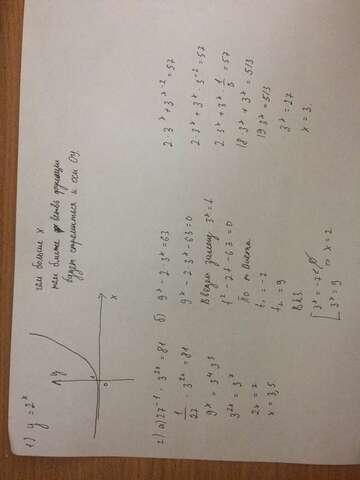 1) y = 2^x
y
1
0
x
чем больше x
тем ближе ветвь функции
будет стремиться к оси Oy.
2) а) 27^-1 · 3^2x = 81
1/27 · 3^2x = 81
9^x = 3^4 · 3^3
3^2x = 3^7
2x = 7
x = 3,5.
б) 9^x - 2 · 3^x = 63
9^x - 2 · 3^x - 63 = 0
Введём замену 3^x = t
t^2 - 2t - 63 = 0
По т. Виета
t₁ = -7
t₂ = 9
В.к.з.
[ 3^x = -7 ∉ ∅
[ 3^x = 9 ⇒ x = 2
2 · 3^x + 3^x-2 = 57
2 · 3^x + 3^x · 3^-2 = 57
2 · 3^x + 3^x · 1/9 = 57
18 · 3^x + 3^x = 513
19 · 3^x = 513
3^x = 27
x = 3.